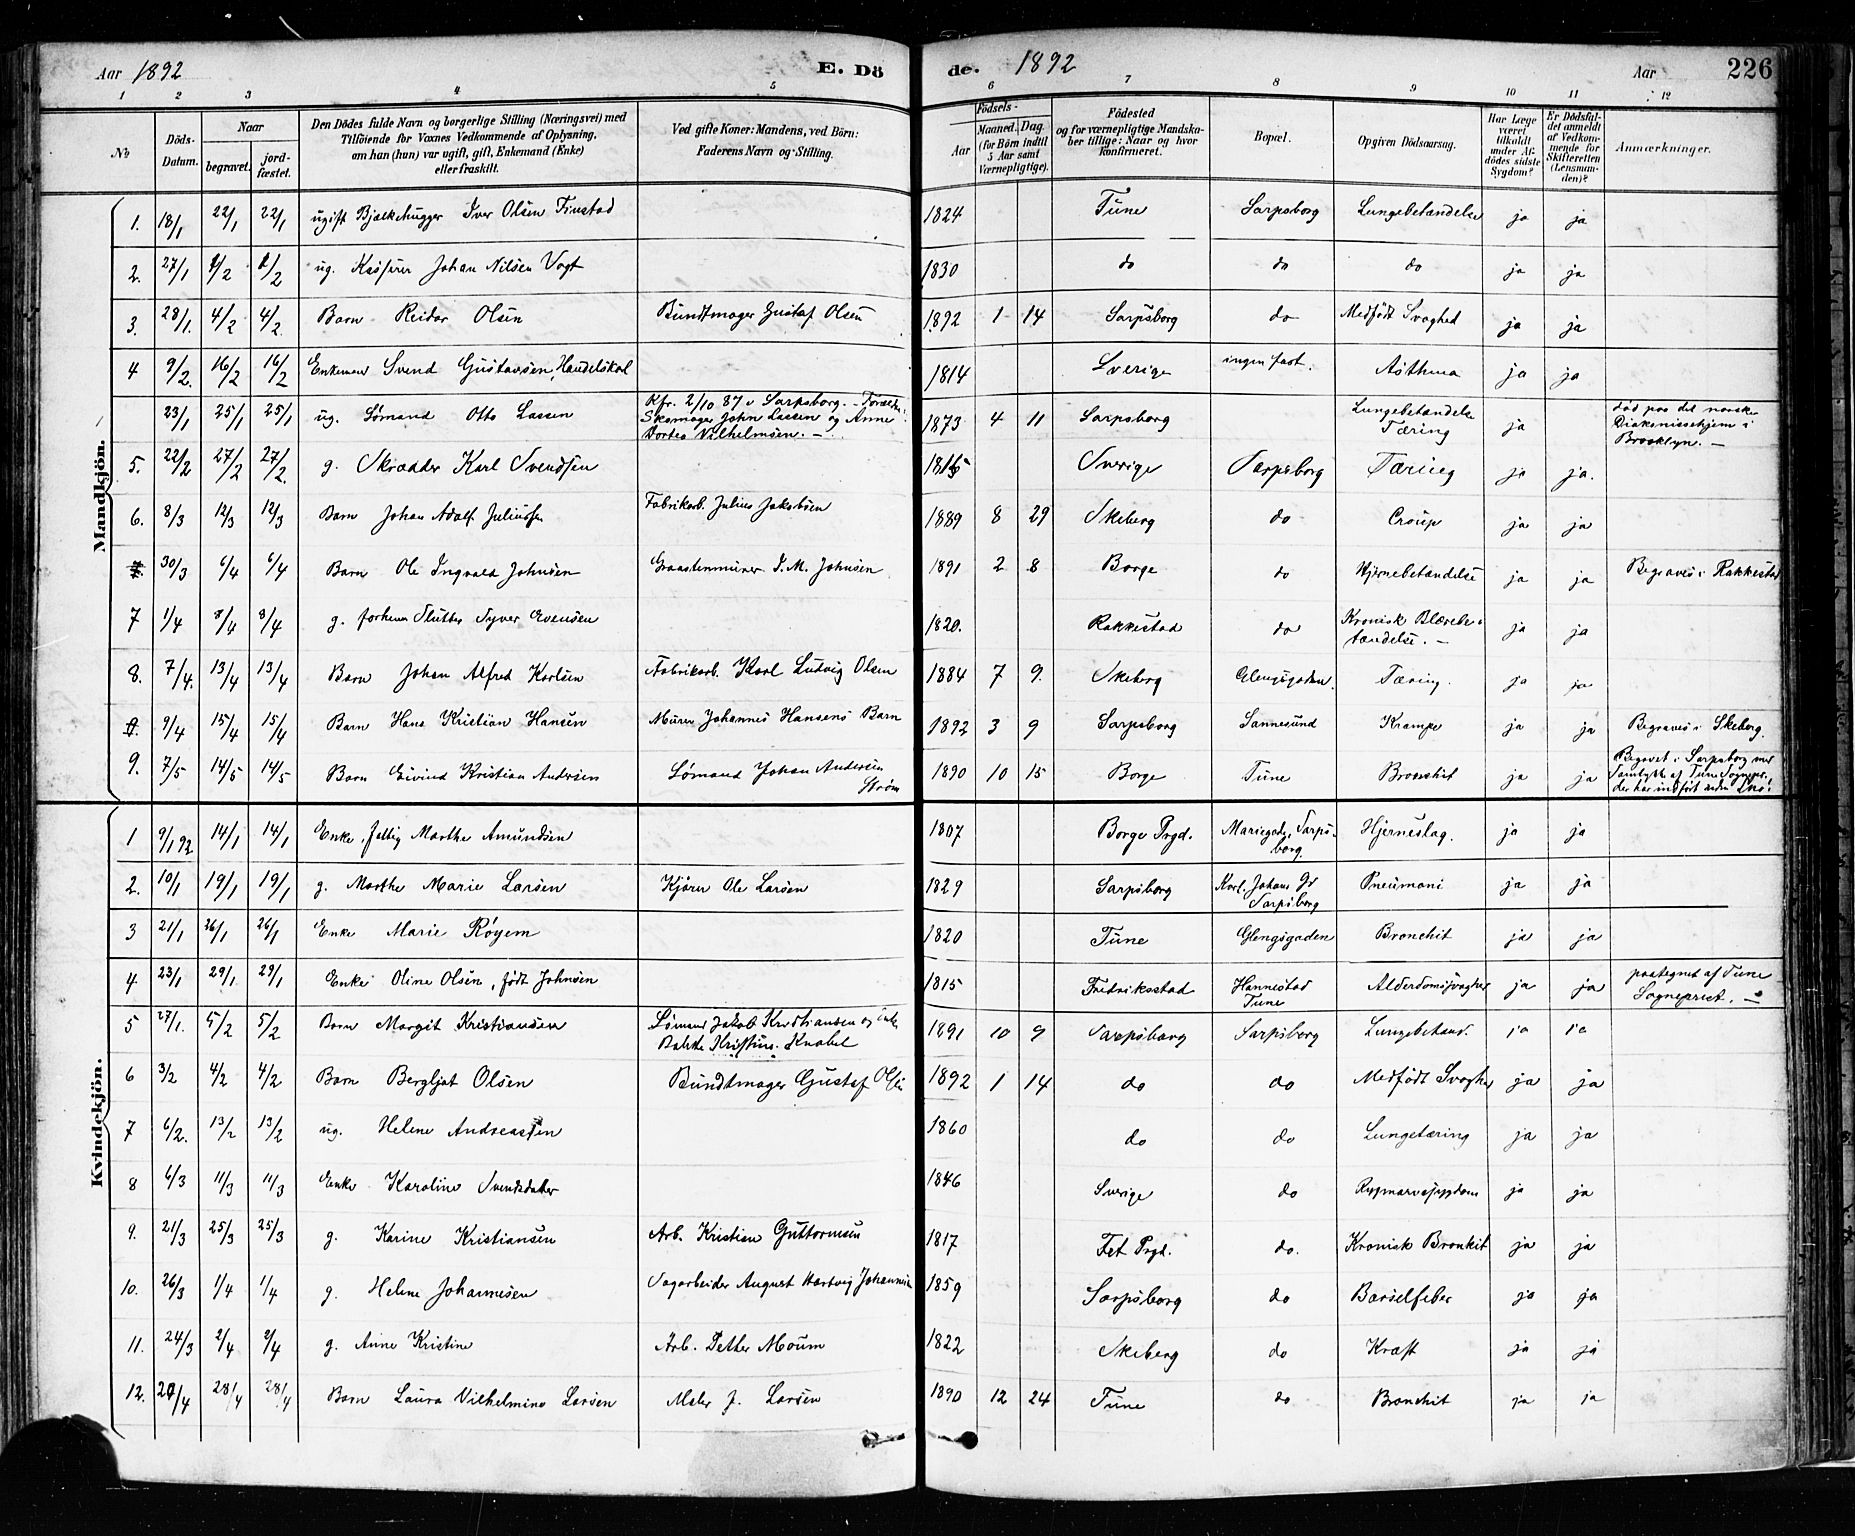 Aar 1892 E. Dö de. 1892 Aar 226
1 2 3 4 5 6 7 8 9 10 11 12
No
Döds-Datum.
Naar
begravet.
jord-fæstet.
Den Dödes fulde Navn og borgerlige Stilling (Næringsvei) med
Tilföiende for Voxnes Vedkommende af Oplysning,
om han (hun) var ugift, gift, Enkemand (Enke)
eller fraskilt.
Ved gifte Koner: Mandens, ved Börn:
Faderens Navn og Stilling.
Födsels-
Aar
Maaned. Dag
(for Börn indtil
5 Aar samt
Værnepligtige).
Födested
og for værnepligtige Mandska-
ber tillige: Naar og hvor
konfirmeret.
Bopæl.
Opgiven Dödsaarsag.
Har Læge
været
tilkaldt
under Af-
dödes sidste
Sygdom?
Er Dödsfal-
det anmeldt
af Vedkom-
mende for
Skifteretten
(Lensman-
den)?
Anmærkninger.
Mandkjön.
1. 18/1 22/1 22/1 ugift Bjælkehugger Iver Olsen Finstad 1824 Tune Sarpsborg Lungebetændelse ja ja
2. 27/1 2/2 2/2 ug. Kasserer Johan Nilsen Vogt 1830 do do do ja ja
3. 28/1. 4/2 4/2. Barn Reidar Olsen Bundtmager Gustaf Olsen 1892 1 14 Sarpsborg do Medfödt Svaghed ja ja
4 9/2. 16/2 16/2 Enkeman Svend Gustavsen, Handelskarl 1814 Sverige ingen fast. Asthma ja ja
23/1 25/1 25/1 ug. Sømand Otto Lassen Kfr. 2/10 87 i Sarpsborg. - Forældre: Skomager John Lassen og Anne Dortea Vilhelmsen. - 1873 4 11 Sarpsborg Lungebetændelse Tæring ja død paa det norske Diakonissehjem i Brooklyn. -
5. 22/2 27/2 27/2. g. Skrædder Karl Svendsen 1815 Sverige Sarpsborg Tæring ja ja.
6. 8/3 12/3 12/3 Barn Johan Adolf Juliussen Fabrikarb. Julius Jakobsen 1889 8 29 Skeberg do Croup ja ja
7. 30/3 6/4 6/4 Barn Ole Ingvald Johnsen Graastenmurer J. M. Johnsen 1891 2 8 Borge do Hjernebetændelse ja ja Begraves i Rakkestad
7 1/4 8/4 8/4 g. forhenv. Slutter Syver Evensen 1820. Rakkestad do Kronisk Blærebe-tændelse. - ja ja
8. 7/4. 13/4 13/4 Barn Johan Alfred Karlsen Fabrikarb. Karl Ludvig Olsen 1884 7 9. Skeberg Glengsgaden. Tæring. ja ja
9/4 15/4 15/4 Barn Hans Kristian Hansen Murer Johannes Hansens Barn 1892 3 9 Sarpsborg Sannesund Krampe ja ja Begraves i Skeberg.
9. 7/5 14/5 14/5 Barn Eivind Kristian Andersen Sømand Johan Andersen Strøm 1890 10 15 Borge Tune Bronchit ja ja Begravet i Sarpsborg med Samtykke af Tune Sognepr. der har indført under
Kvindekjön.
1 9/1 92 14/1 14/1 Enke, fattig Marthe Amundsen 1807 Borge Prgd. Mariegade, Sarpsborg Hjerneslag. ja ja
2. 10/1 19/1 19/1 g. Marthe Marie Larsen Kjörer Ole Larsen 1829 Sarpsborg Karl Johans Gd Sarpsborg Pneumoni ja ja
3 21/1 26/1 26/1 Enke Marie Røyem 1820 Tune Glengsgaden Bronchit ja ja
4 23/1 29/1 29/1 Enke Oline Olsen, født Johnsen 1815 Fredriksstad Hannestad Tune Alderdomssvaghed ja ja paategnet af Tune Sogneprest. -
5 27/1. 5/2 5/2 Barn Margit Kristiansen Sømand Jakob Kristiansen og Kristine Knobel 1891 10 9 Sarpsborg Sarpsborg Lungebetænd. ja ja
6 3/2 4/2 4/2 Barn Bergljot Olsen Bundtmager Gustaf Olsen 1892 1 14 do do Medfødt Svaghed ja ja
7 6/2. 13/2 13/2 ug. Helene Andreassen 1860 do do Lungetæring ja ja
8 6/3 11/3 11/3 Enke Karoline Svendsdatter 1846 Sverige do Rygmarvssygdom ja ja
9. 21/3 25/3 25/3 g. Karine Kristiansen Arb. Kristian Guttormsen 1817 Fet Prgd. do. Kronisk Bronkit ja ja
10. 26/3 1/4 1/4 g. Helene Johannesen Sagarbeider August Hartvig Johannesen 1859 Sarpsborg do Barselfeber ja ja
11. 24/3 2/4 2/4 g. Anne Kristine Arb. Petter Moum 1822 Skeberg do Kræft ja ja
12. 20/4 28/4 28/4 Barn Laura Vilhelmine Larsen Maler J. Larsen 1890 12 24 Tune do Bronchit ja ja